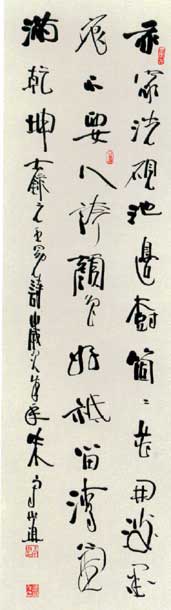 我家洗硯池邊樹箇〻花開淡墨
痕不要人誇顏色好祇留清氣
滿乾坤 元王冕詩